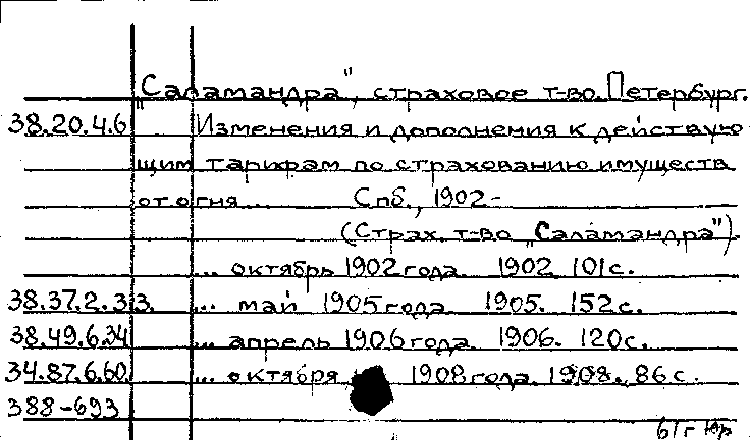 "Саламандра", страховое т-во. Петербург.
38.20.4.6 . Изменения и дополнения к действую
щим тарифам по страхованию имуществ
от огня... Спб., 1902-
(Страх. т-во "Саламандра").
... октябрь 1902 года. 1902 101 с.
38.37.2.33. ... май 1905 года. 1905. 152 с.
38.49.6.34 ... апрель 1906 года. 1906. 120 с.
34.87.6.60. ... октября 1908 года. 1908. 86 с.
388-693
61 г